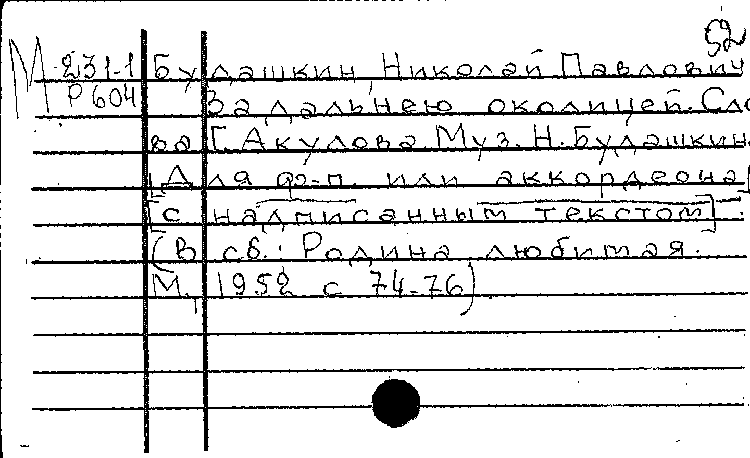 52
М 231-1 Будашкин, Николай Павлович
Р 604 За дальнею околицей. Сло
ва Г. Акулова. Муз. Н. Будашкин.
[Для ф-п. или аккордеона]
[с надписанным текстом].
(В сб.: Родина любимая.
М., 1952 с 74-76)